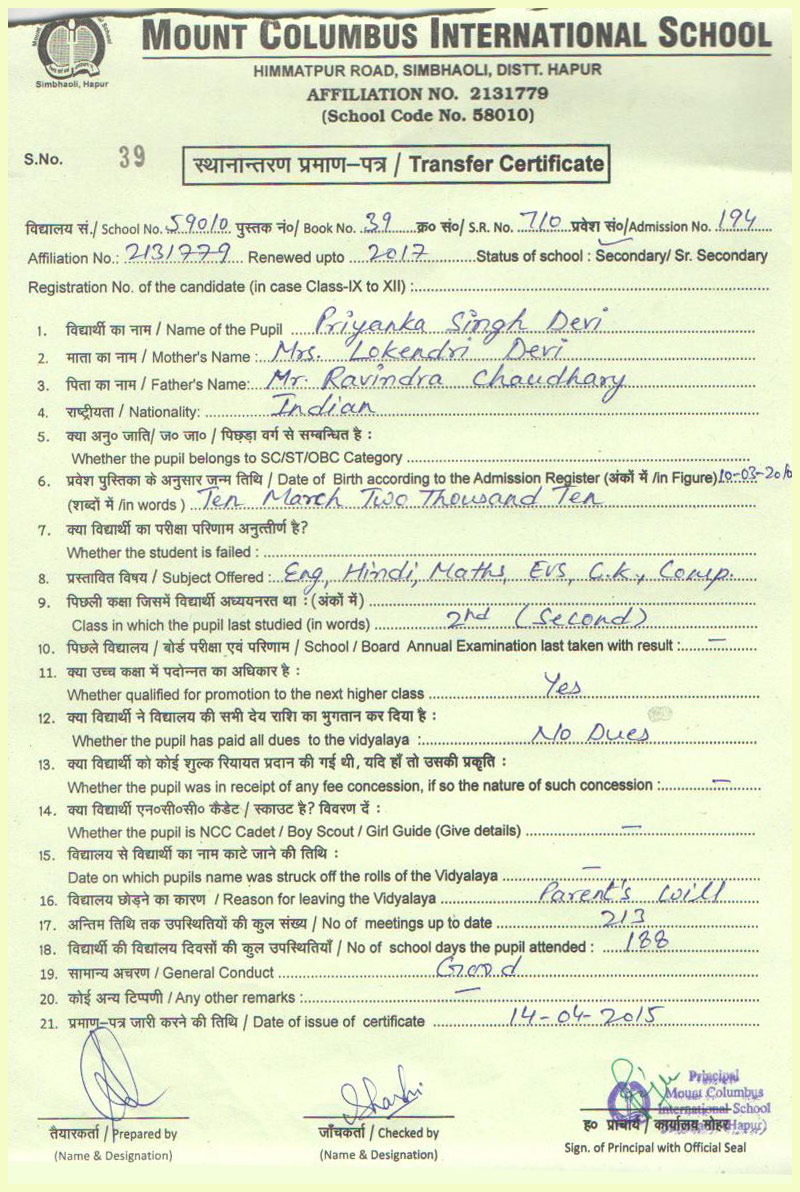 Simbhaoli, Hapur
MOUNT COLUMBUS INTERNATIONAL SCHOOL
HIMMATPUR ROAD, SIMBHAOLI, DISTT. HAPUR
AFFILIATION NO. 2131779
(School Code No. 58010)
S.No. 39 स्थानान्तरण प्रमाण–पत्र / Transfer Certificate
विद्यालय सं./ School No. 59010 पुस्तक नं०/ Book No. 39 क्र० सं०/ S.R. No. 710 प्रवेश सं०/Admission No. 194
Affiliation No.: 2131779 Renewed upto 2017 Status of school : Secondary/ Sr. Secondary
Registration No. of the candidate (in case Class-IX to XII) :
1. विद्यार्थी का नाम / Name of the Pupil Priyanka Singh Devi
2. माता का नाम / Mother's Name : Mrs. Lokendri Devi
3. पिता का नाम / Father's Name: Mr. Ravindra Chaudhary
4. राष्ट्रीयता / Nationality: Indian
5. क्या अनु० जाति/ ज० जा० / पिछड़ा वर्ग से सम्बन्धित है :
Whether the pupil belongs to SC/ST/OBC Category
6. प्रवेश पुस्तिका के अनुसार जन्म तिथि / Date of Birth according to the Admission Register (अंकों में /in Figure) 10-03-2010
(शब्दों में /in words ) Ten March Two Thousand Ten
7. क्या विद्यार्थी का परीक्षा परिणाम अनुत्तीर्ण है?
Whether the student is failed :
8. प्रस्तावित विषय / Subject Offered : Eng, Hindi, Maths, EVS, G.K., Comp.
9. पिछली कक्षा जिसमें विद्यार्थी अध्ययनरत था : (अंकों में)
Class in which the pupil last studied (in words) 2nd (Second)
10. पिछले विद्यालय / बोर्ड परीक्षा एवं परिणाम / School / Board Annual Examination last taken with result : —
11. क्या उच्च कक्षा में पदोन्नत का अधिकार है :
Whether qualified for promotion to the next higher class Yes
12. क्या विद्यार्थी ने विद्यालय की सभी देय राशि का भुगतान कर दिया है :
Whether the pupil has paid all dues to the vidyalaya : No Dues
13. क्या विद्यार्थी को कोई शुल्क रियायत प्रदान की गई थी, यदि हाँ तो उसकी प्रकृति :
Whether the pupil was in receipt of any fee concession, if so the nature of such concession : —
14. क्या विद्यार्थी एन०सी०सी० कैडेट / स्काउट है? विवरण दें :
Whether the pupil is NCC Cadet / Boy Scout / Girl Guide (Give details) —
15. विद्यालय से विद्यार्थी का नाम काटे जाने की तिथि :
Date on which pupils name was struck off the rolls of the Vidyalaya —
16. विद्यालय छोड़ने का कारण / Reason for leaving the Vidyalaya Parent's will
17. अन्तिम तिथि तक उपस्थितियों की कुल संख्य / No of meetings up to date 213
18. विद्यार्थी की विद्यालय दिवसों की कुल उपस्थितियाँ / No of school days the pupil attended : 188
19. सामान्य अचरण / General Conduct Good
20. कोई अन्य टिप्पणी / Any other remarks : —
21. प्रमाण–पत्र जारी करने की तिथि / Date of issue of certificate 14-04-2015
Principal
Mount Columbus
International School
Hapur)
तैयारकर्ता / Prepared by
(Name & Designation)
जाँचकर्ता / Checked by
(Name & Designation)
ह० प्राचार्य / कार्यालय मोहर
Sign. of Principal with Official Seal